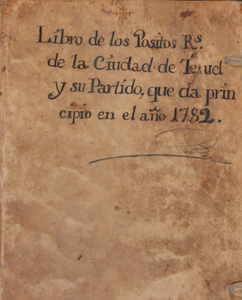 Libro de los Positos Rs.
de la Ciudad de Teruel
y su Partido, que da prin
cipio en el año 1782.